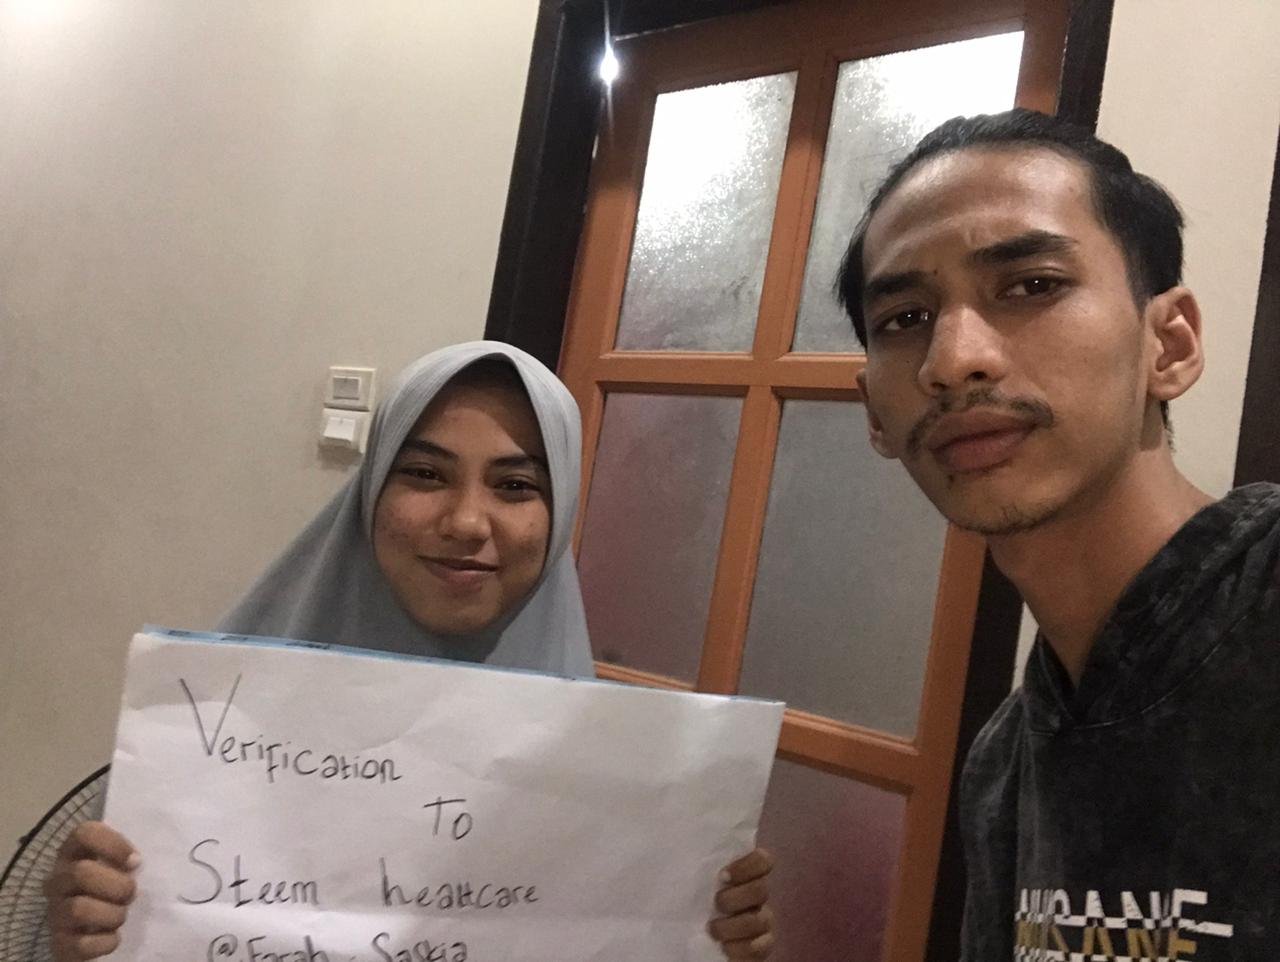 Verification
To
Steem healtcare
@Farah. Saskia
INSANE